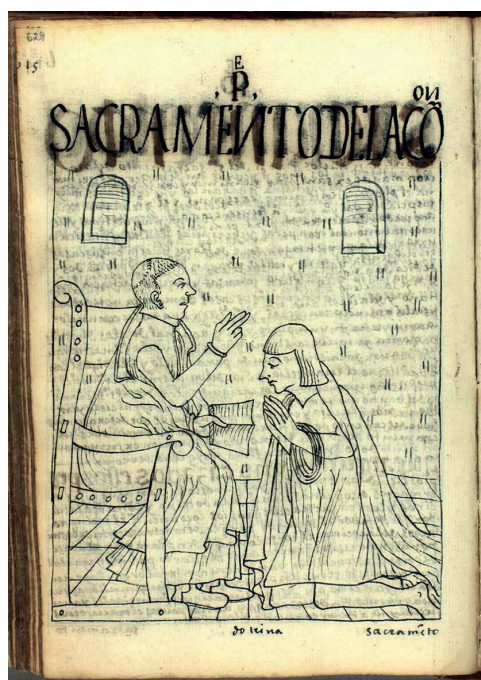 629
15
E
P
ON
SACRAMENTO DE LA CÕ
dotrina sacramẽto